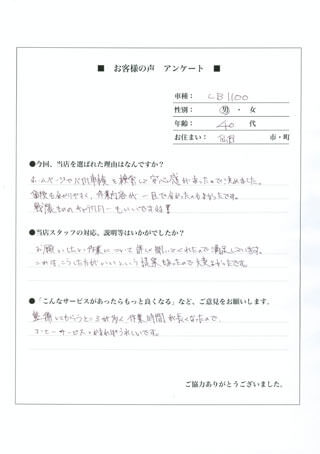 ■ お客様の声 アンケート ■
車種： CB1100
性別： 男 ・ 女
年齢： 40 代
お住まい： 市・町
●今回、当店を選ばれた理由はなんですか？
ホームページや を検索して安心感があったので決めました。
金額も分かりやすく、作業内容が一目で分かったのもよかったです。
●当店スタッフの対応、説明等はいかがでしたか？
お願いしたい作業について詳しく聞いてくれたので満足しています。
これは、こうした方がいいという提案もあったので大変よかったです。
●「こんなサービスがあったらもっと良くなる」など、ご意見をお願いします。
整備してもらうところが多く作業時間が長くなったので、
コーヒーサービス があればうれしいです。
ご協力ありがとうございました。